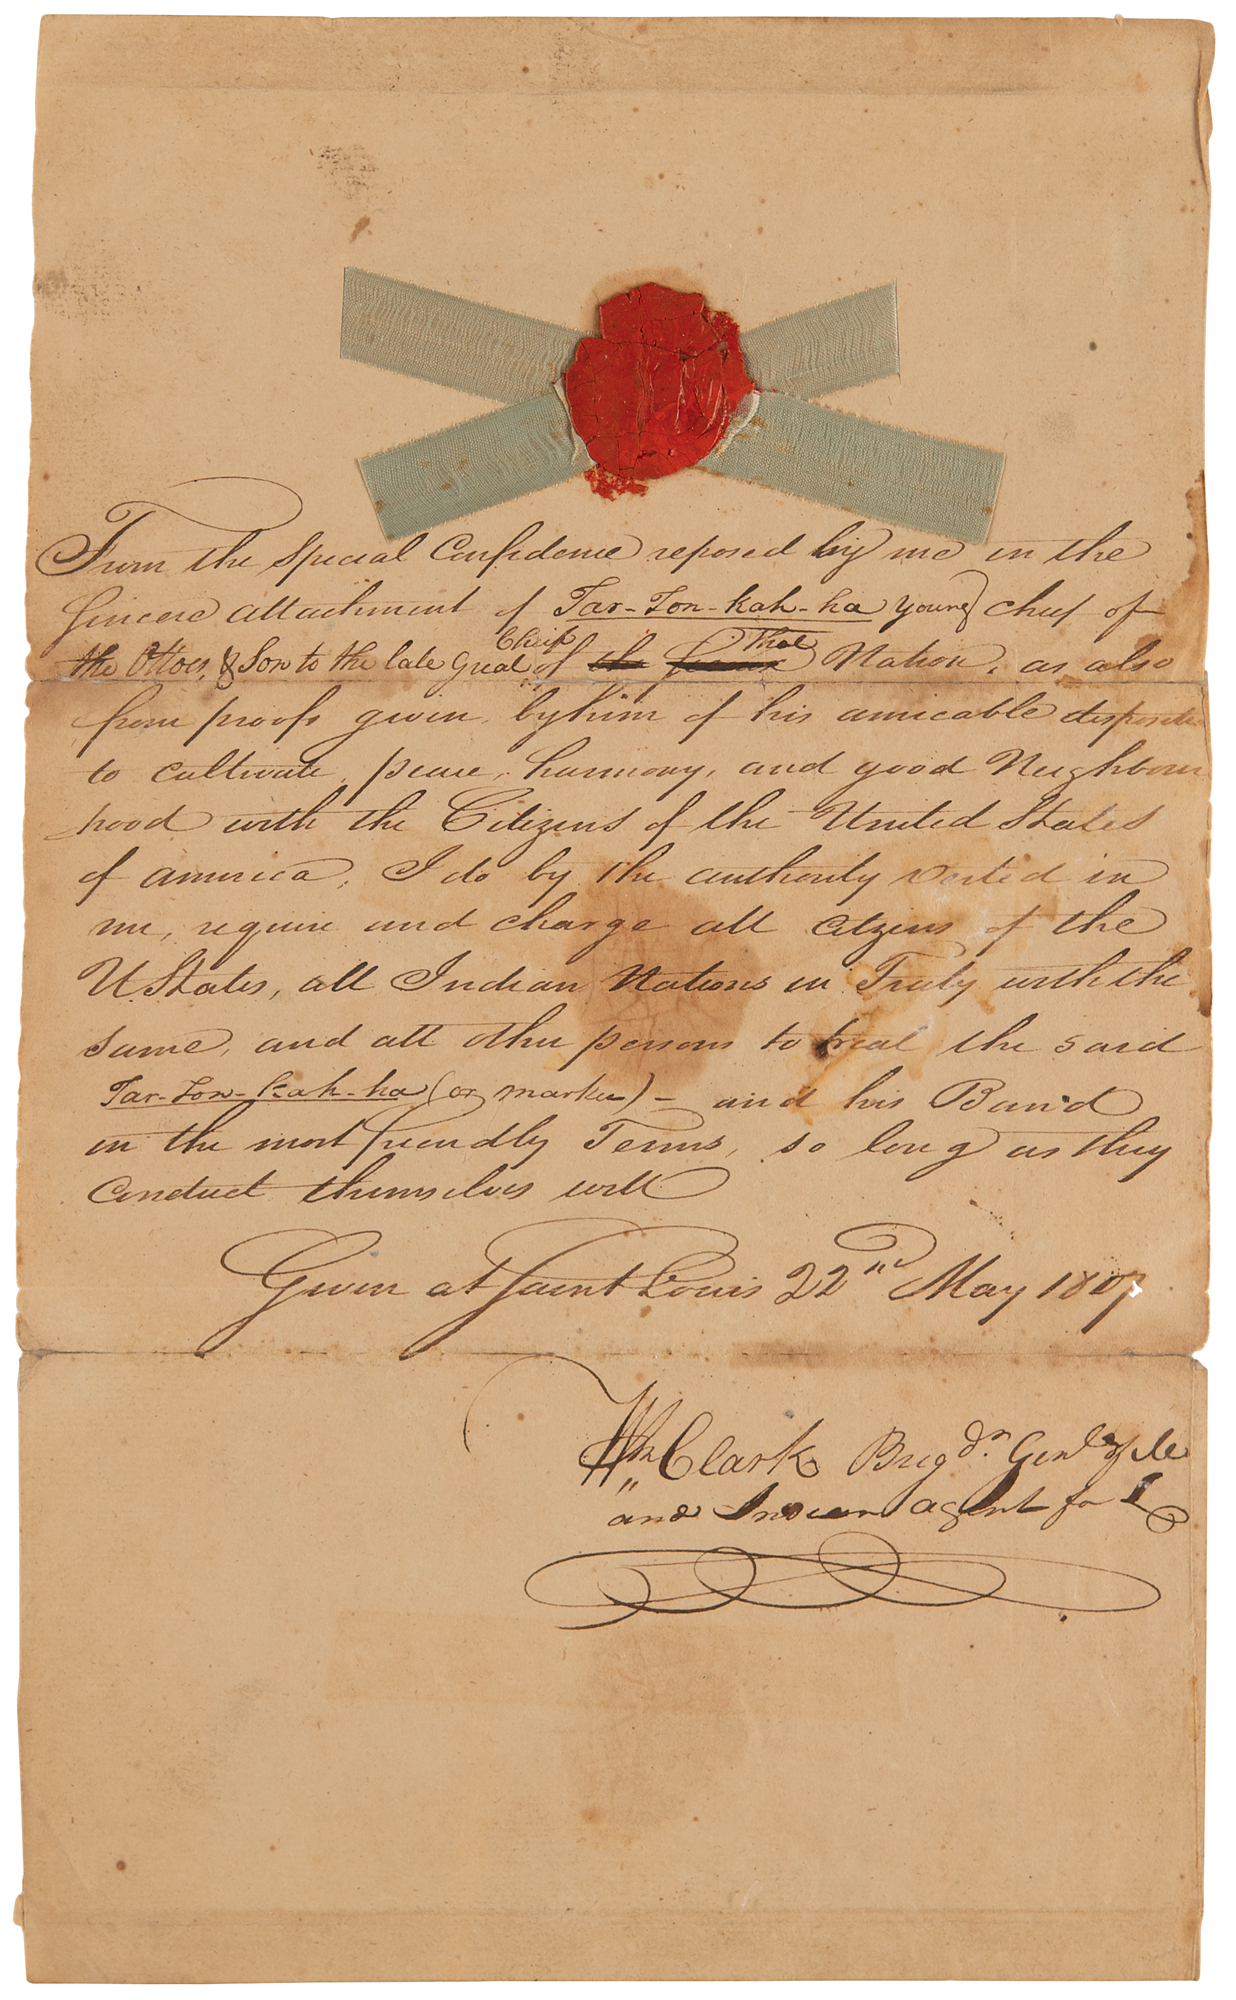 From the Special Confidence reposed by me in the
Sincere attachment of Tar-Ton-kah-ha young chief of
Chief That
the Ottoes, & Son to the late Great of the Nation, as also
from proofs given by him of his amicable
to cultivate, peace, harmony, and good Neighbour
hood with the Citizens of the United States
of america; I do by the authority vested in
me, require and charge all Citzens of the
U. States, all Indian Nations in Treaty with the
same, and all other persons to treat the said
Tar-Ton-kah-ha (or marke) - and his Band
in the most friendly Terms, so long as they
Conduct themselves well
Given at Saint Louis 22nd May 1807
Wm Clark Brigdr. Genl of
and Indian agent for